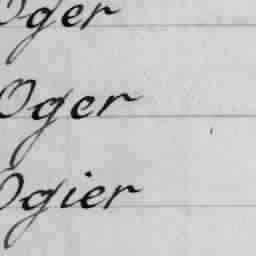 Oger
Oger
Ogier